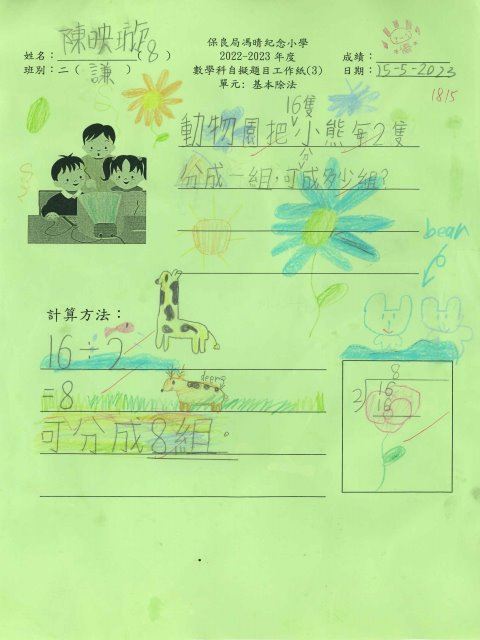 保良局馮晴紀念小學
2022-2023 年度
數學科自擬題目工作紙(3)
單元: 基本除法
姓名：陳映璇(8)
班別：二( 謙 )
成績：
日期：15-5-2023
18/5
16隻
動物園把小熊每2隻
分
分成一組，可成多少組？
bear
計算方法：
16÷2
=8
可分成8組。
8
2)16
16